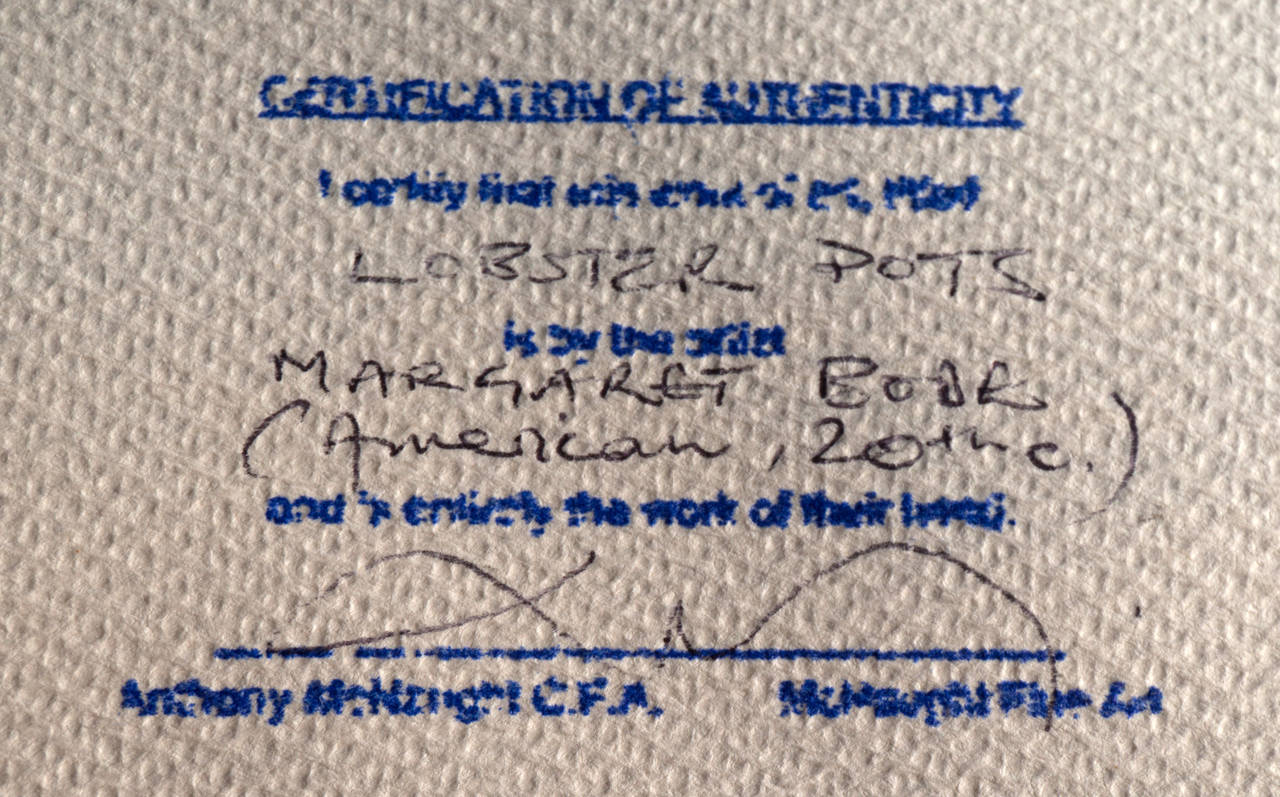 CERTIFICATION OF AUTHENTICITY
I certify that this work of art, titled
LOBSTER POTS
is by the artist
MARGARET BODE
(American, 20th c.)
and is entirely the work of their hand.
Anthony McNaught C.F.A. McNaught Fine Art